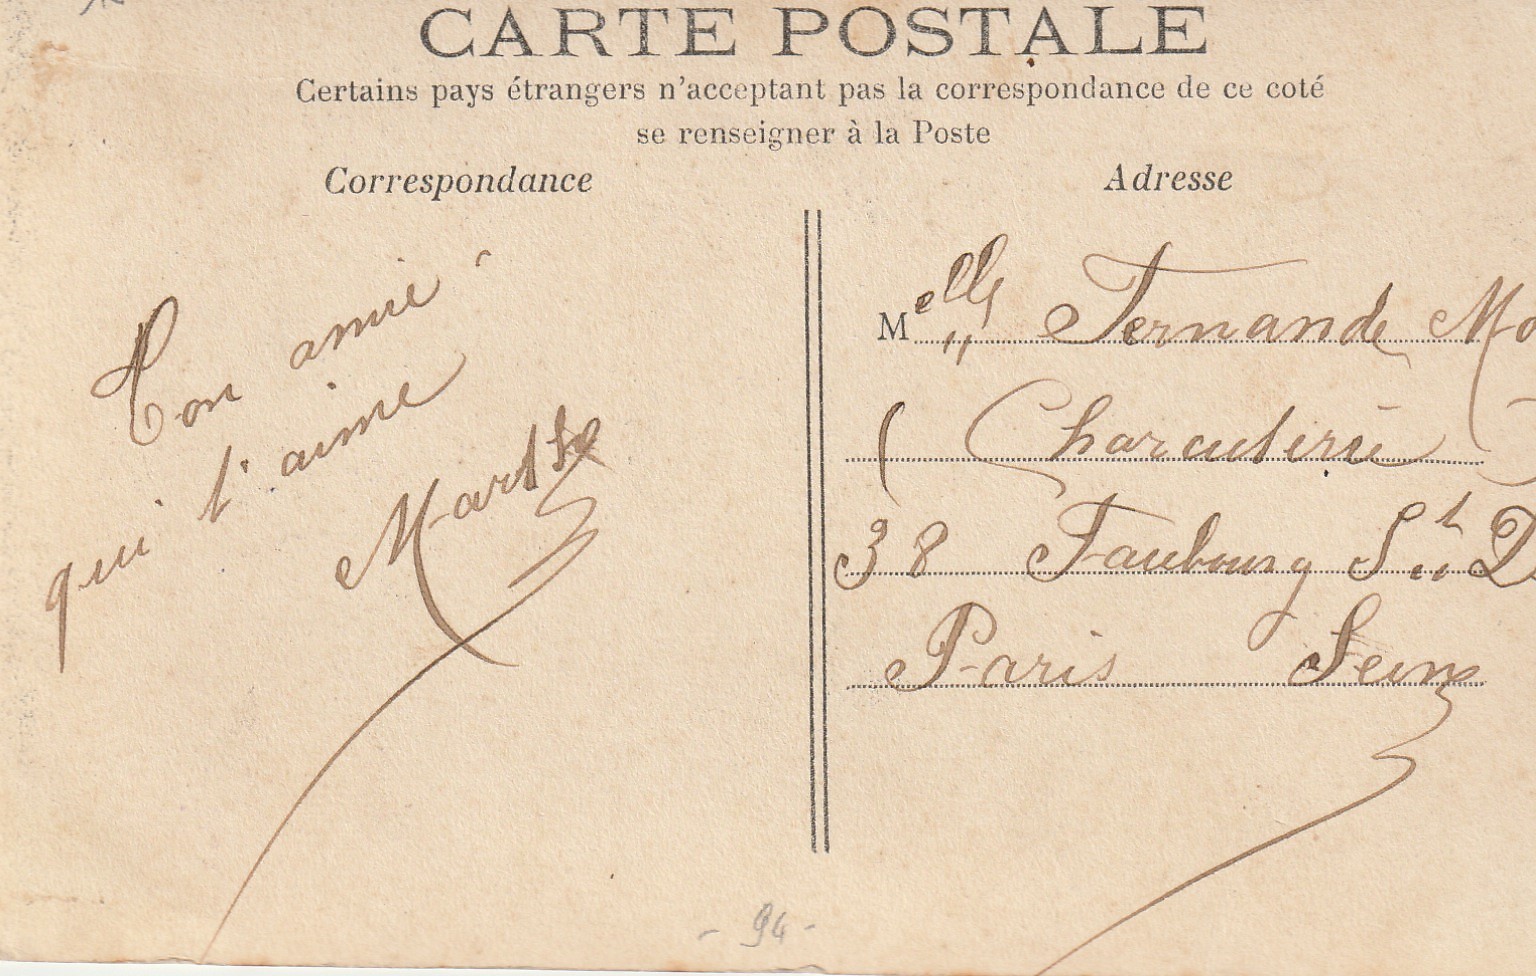 CARTE POSTALE
Certains pays étrangers n'acceptant pas la correspondance de ce coté
se renseigner à la Poste
Correspondance
Ton amie
qui t'aime
Marthe
Adresse
Melle Fernande Mo
( Charcuterie )
38 Faubourg St D
Paris Seine
- 94 -